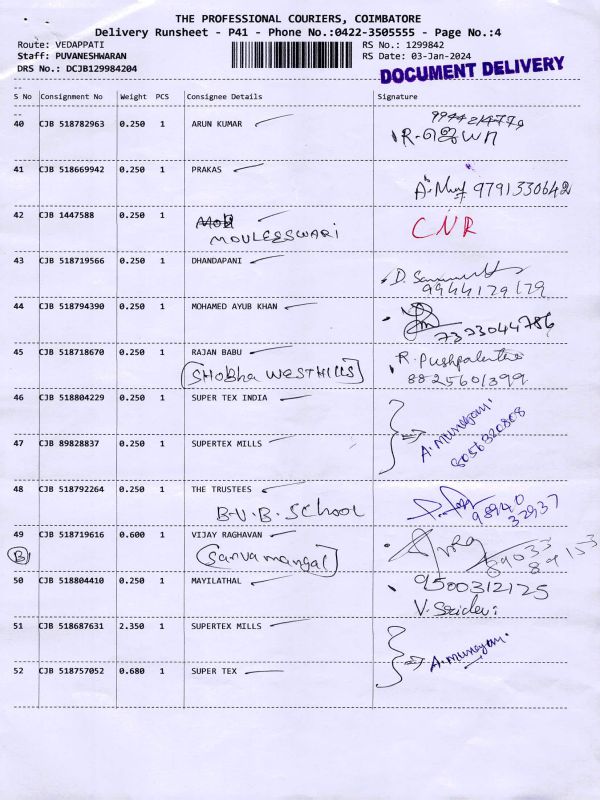 THE PROFESSIONAL COURIERS, COIMBATORE
Delivery Runsheet - P41 - Phone No.:0422-3505555 - Page No.:4
Route: VEDAPPATI
RS No.: 1299842
Staff: PUVANESHWARAN
RS Date: 03-Jan-2024
DRS No.: DCJB129984204
DOCUMENT DELIVERY
S No Consignment No Weight PCS Consignee Details Signature
40 CJB 518782963 0.250 1 ARUN KUMAR
41 CJB 518669942 0.250 1 PRAKAS
9791330642
42 CJB 1447588 0.250 1 MOULEESWARI CNR
43 CJB 518719566 0.250 1 DHANDAPANI
9944129179
44 CJB 518794390 0.250 1 MOHAMED AYUB KHAN
7373044786
45 CJB 518718670 0.250 1 RAJAN BABU
Shobha WESTHILLS
8825601399
46 CJB 518804229 0.250 1 SUPER TEX INDIA
A. Murugan
8056320808
47 CJB 89828837 0.250 1 SUPERTEX MILLS
48 CJB 518792264 0.250 1 THE TRUSTEES
B.V.B. School
98940
32937
49 CJB 518719616 0.600 1 VIJAY RAGHAVAN
B Sarva mangal
89033
89153
50 CJB 518804410 0.250 1 MAYILATHAL
9500312125
51 CJB 518687631 2.350 1 SUPERTEX MILLS
A. Murugan
52 CJB 518757052 0.680 1 SUPER TEX